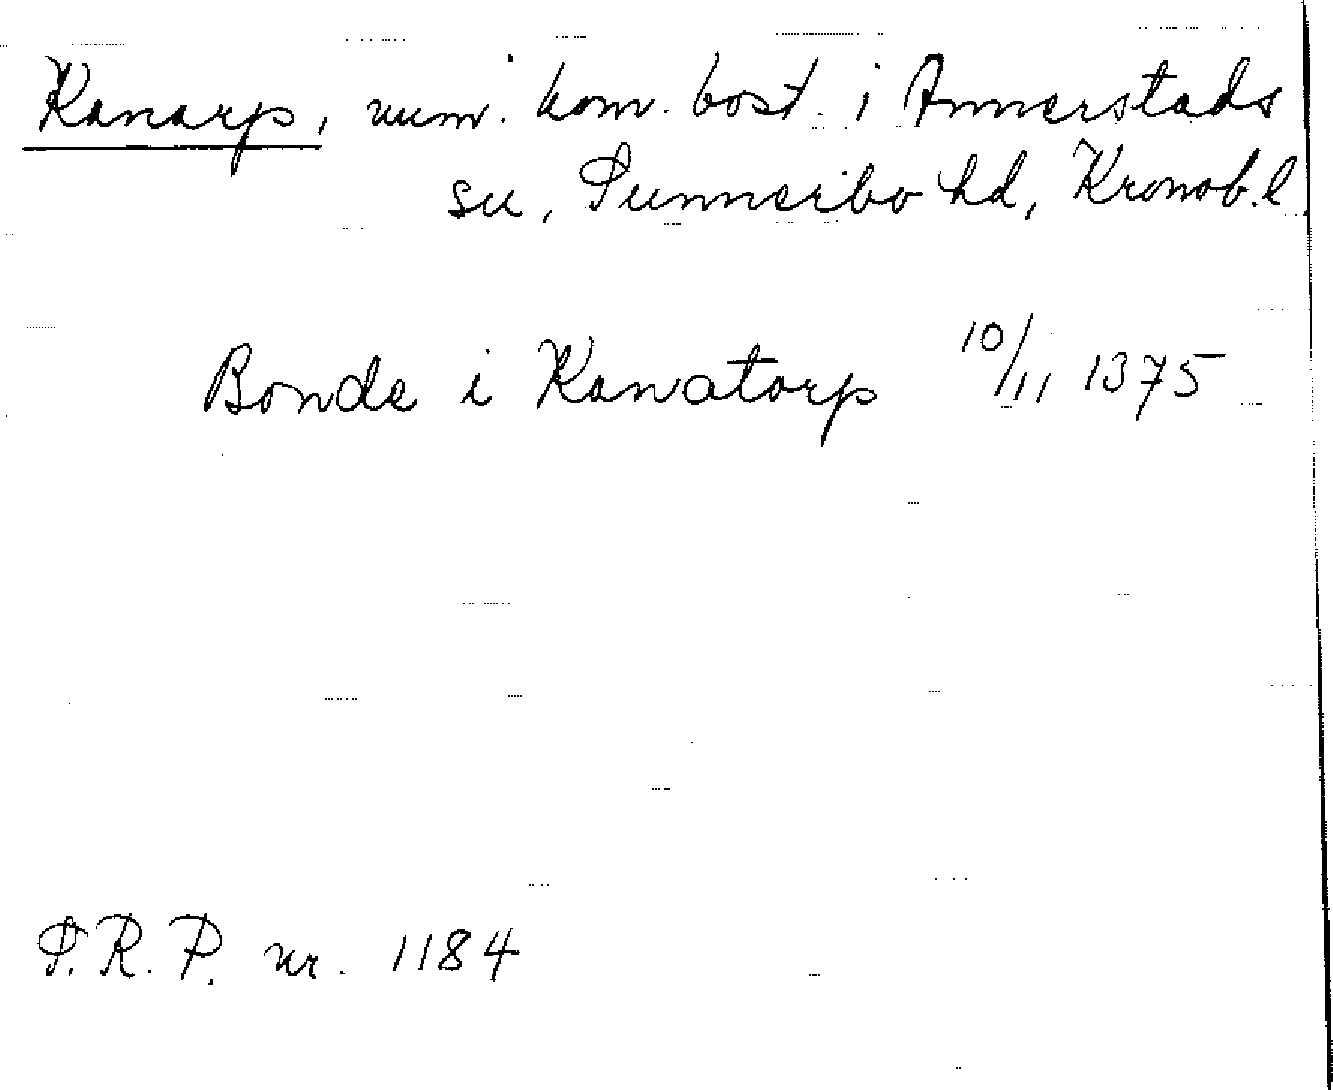 Kanarp, num. kom. bost. i Annerstads
sn, Sunnerbo hd, Kronob. l.
Bonde i Kanatorp 10/11 1375
S.R.P. nr. 1184